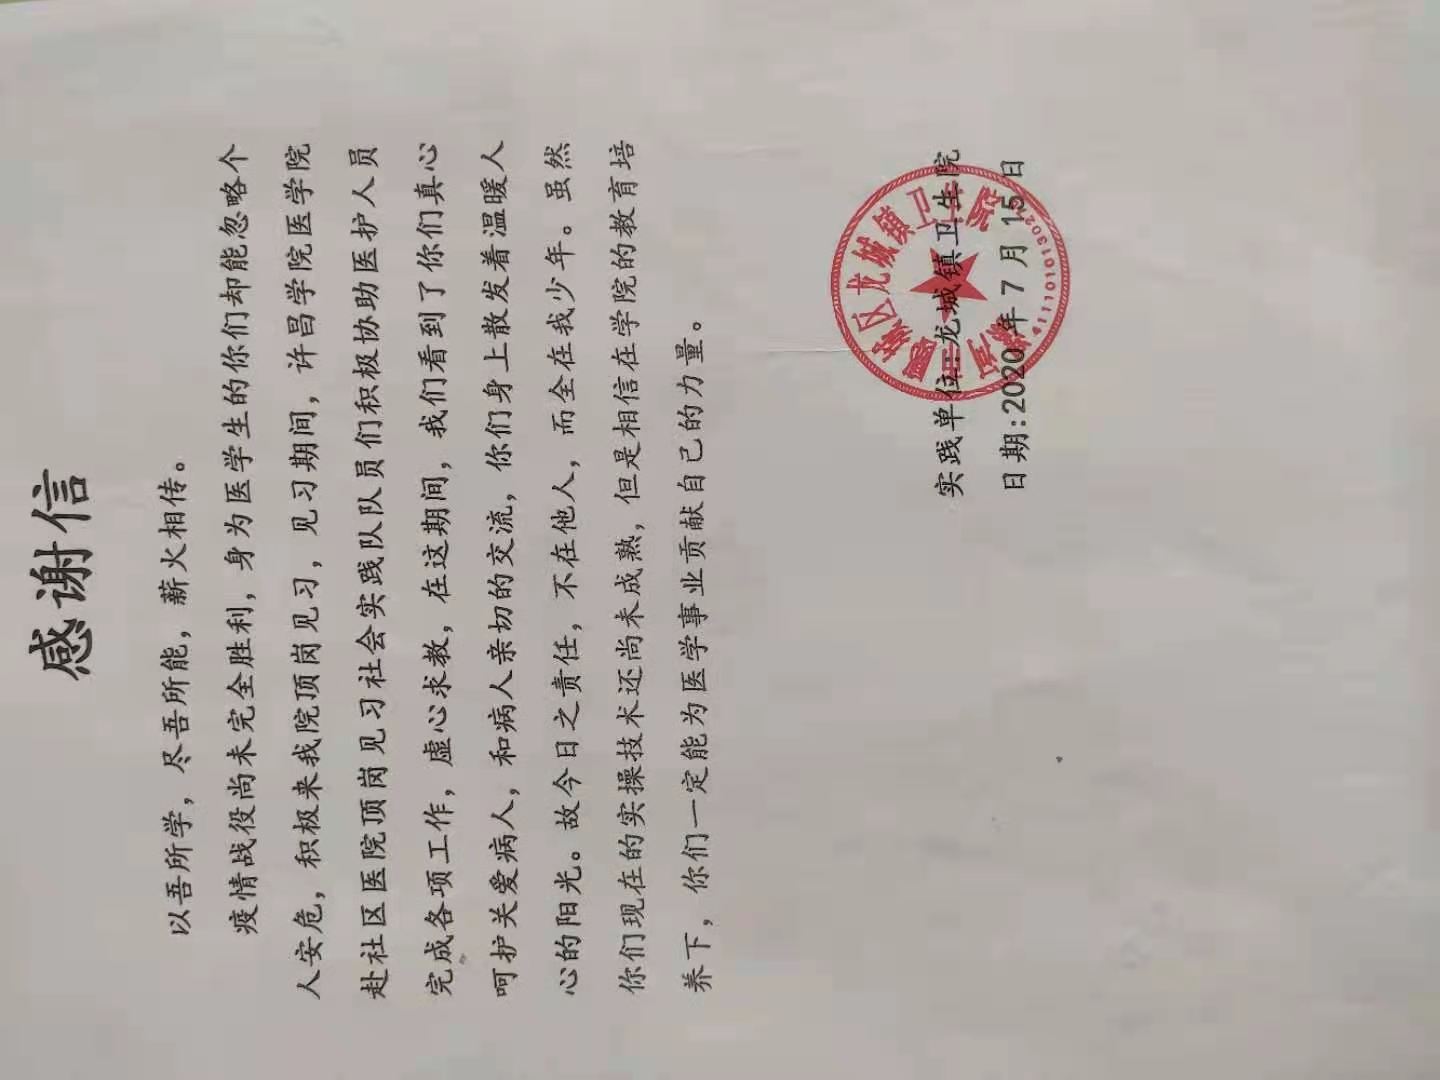 感谢信
以吾所学，尽吾所能，薪火相传。
疫情战役尚未完全胜利，身为医学生的你们却能忽略个
人安危，积极来我院顶岗见习，见习期间，许昌学院医学院
赴社区医院顶岗见习社会实践队队员们积极协助医护人员
完成各项工作，虚心求教，在这期间，我们看到了你们真心
呵护关爱病人，和病人亲切的交流，你们身上散发着温暖人
心的阳光。故今日之责任，不在他人，而全在我少年。虽然
你们现在的实操技术还尚未成熟，但是相信在学院的教育培
养下，你们一定能为医学事业贡献自己的力量。
实践单位:龙城镇卫生院
日期:2020年7月15日
漯河市郾城区龙城镇卫生院